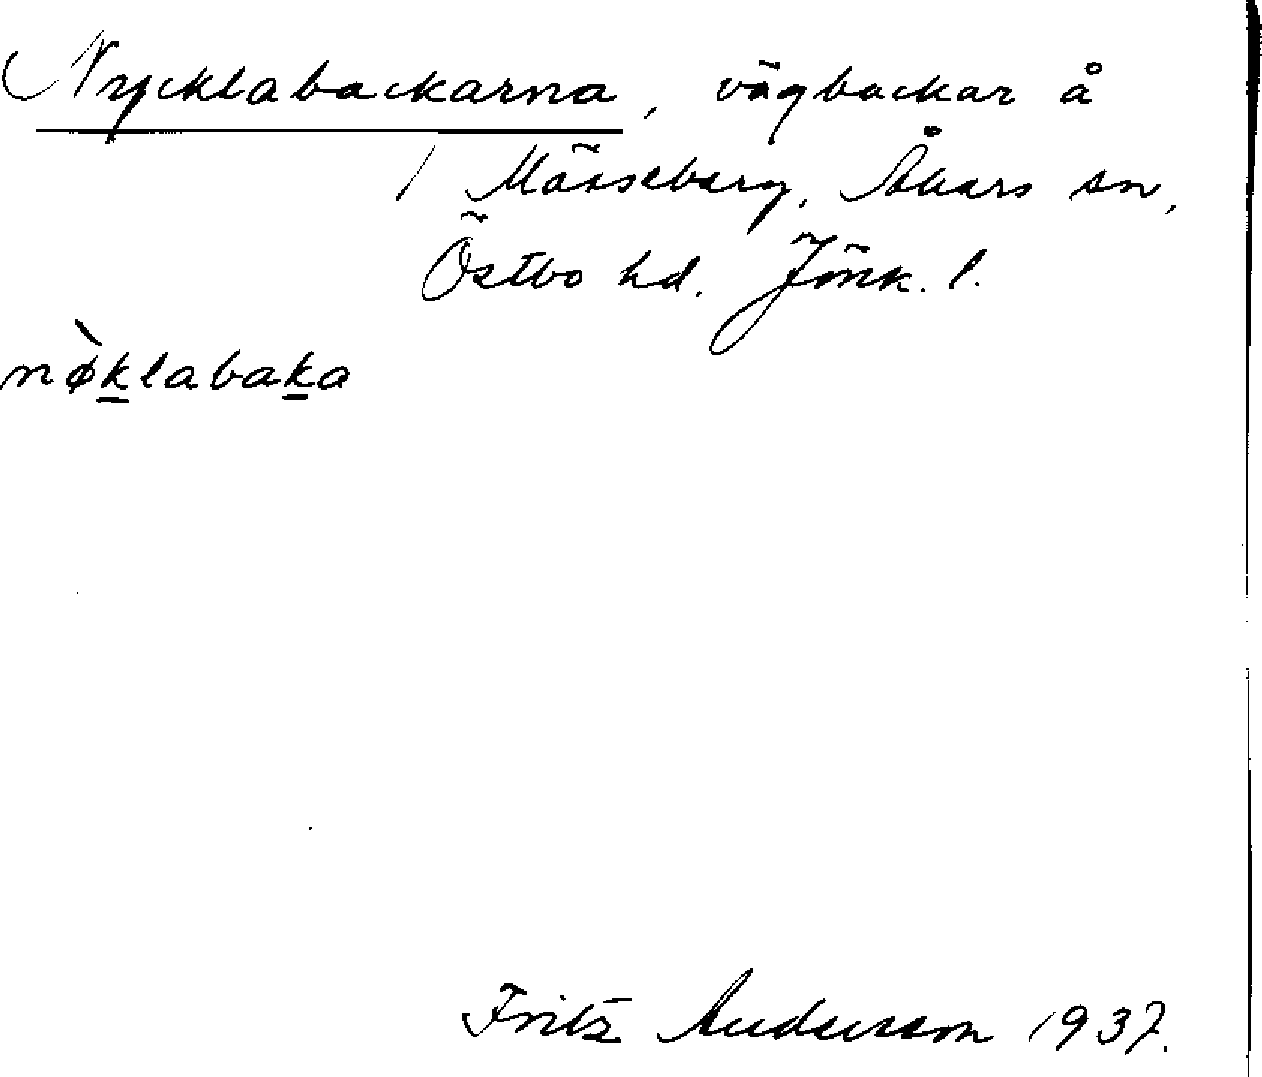 Nycklabackarna, vägbackar å
Mässeberg, Åkers sn,
Östbo hd. Jönk. l.
nø̀klabaka
Fritz Andersson 1937.